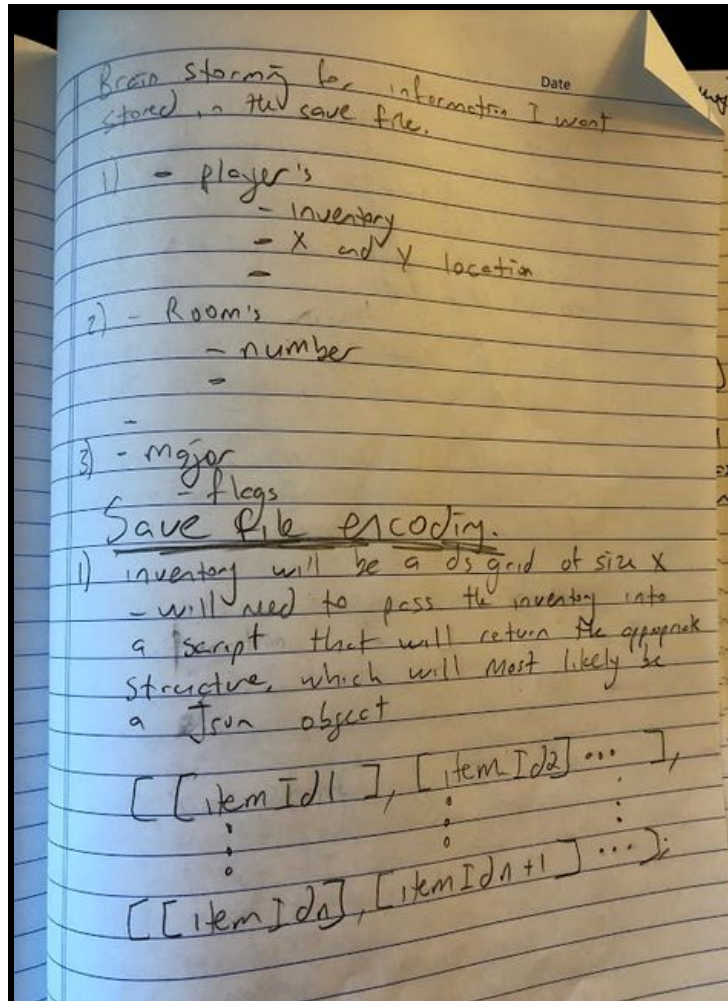 Date
Brain storming for information I want
stored in the save file.
1) - player's
- inventory
- X and Y location
-
2) - Room's
- number
-
-
3) - major
- flags
Save file encoding.
1) inventory will be a ds grid of size X
- will need to pass the inventory into
a script that will return the appropriate
structure, which will most likely be
a Json object
[ [itemId1], [itemId2] ... ],
[ [itemIdn], [itemIdn+1] ... ];